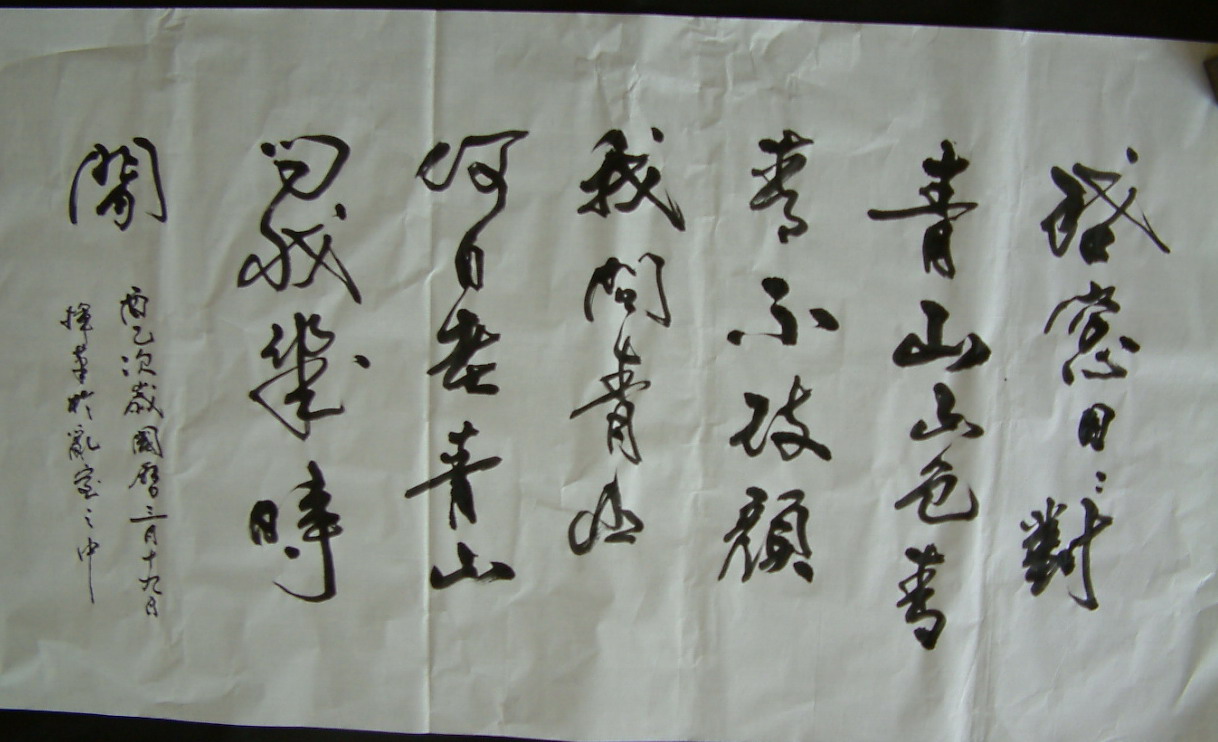 啟窗日〻對
青山山色青
青不改顏
我問青山
何日老青山
問我幾時
閒
酉乙次歲國曆三月十九日
揮於亂室之中